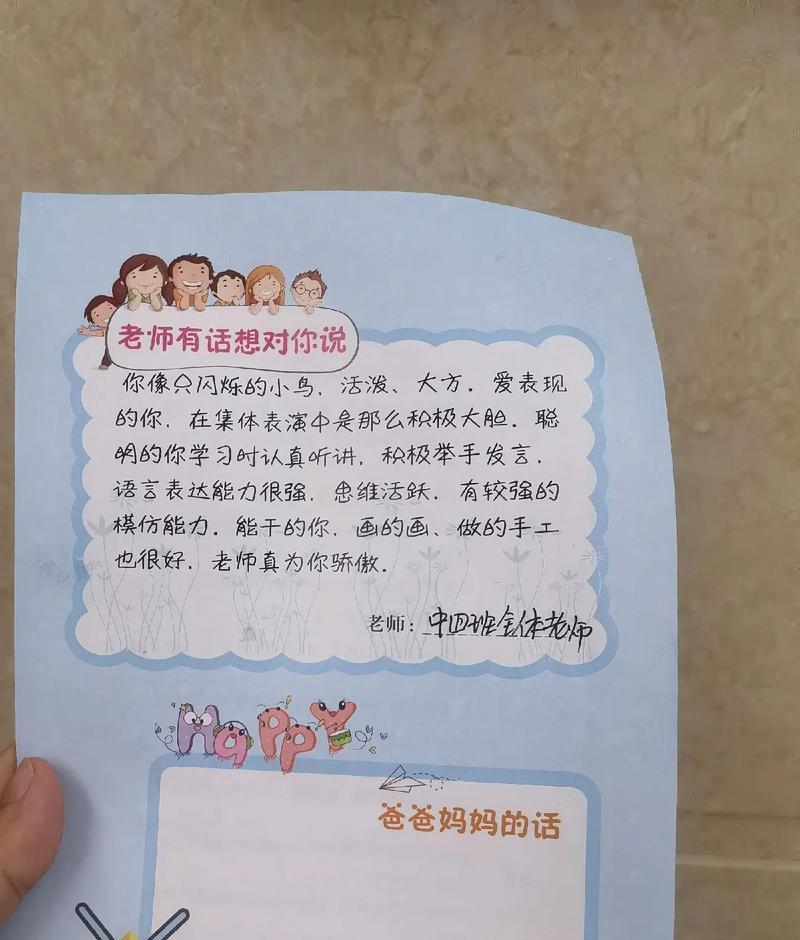 老师有话想对你说
你像只闪烁的小鸟，活泼、大方。爱表现
的你，在集体表演中是那么积极大胆。聪
明的你学习时认真听讲，积极举手发言，
语言表达能力很强，思维活跃，有较强的
模仿能力。能干的你，画的画、做的手工
也很好，老师真为你骄傲。
老师：中四班全体老师
HAPPY
爸爸妈妈的话